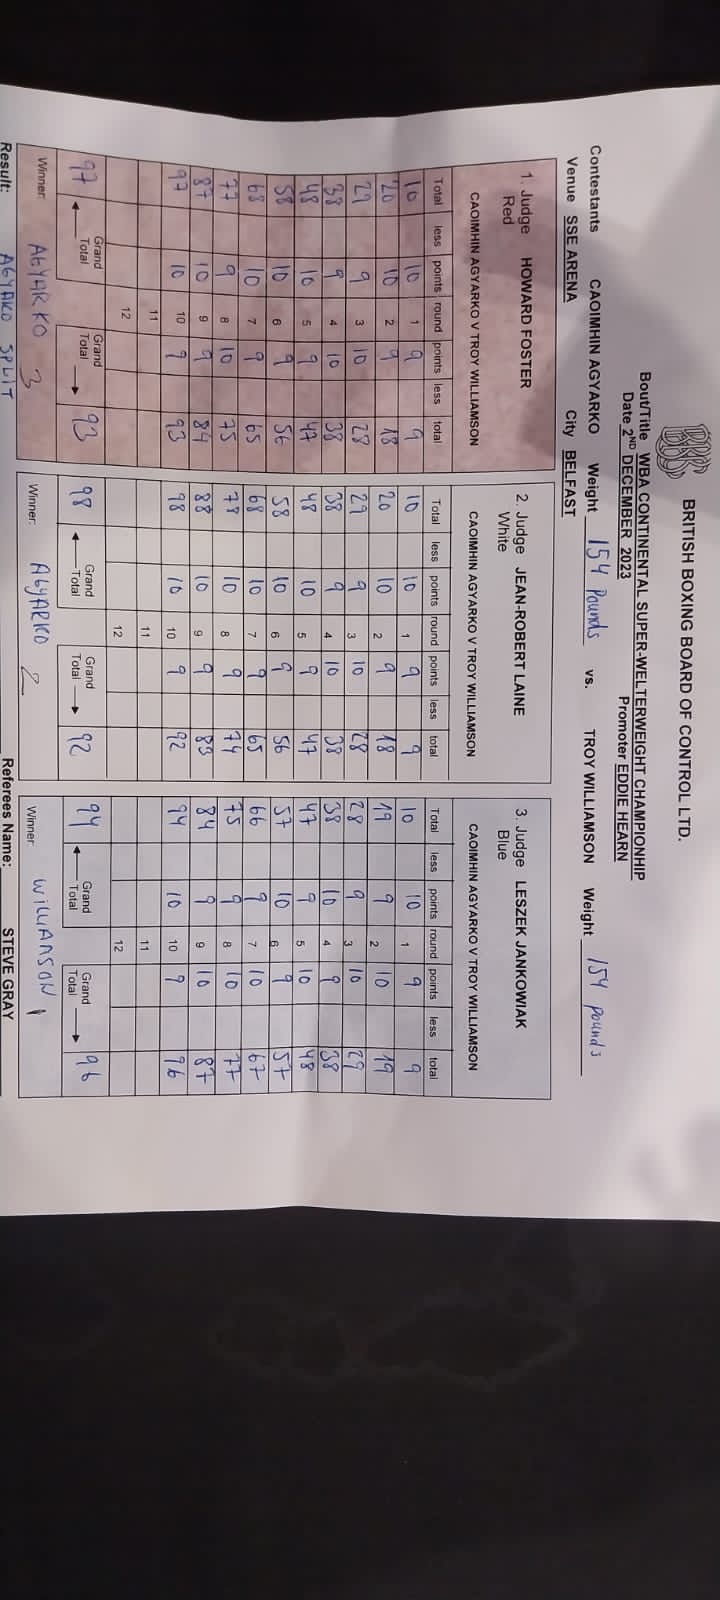 BRITISH BOXING BOARD OF CONTROL LTD.
Bout/Title WBA CONTINENTAL SUPER-WELTERWEIGHT CHAMPIONHIP
Date 2ND DECEMBER 2023 Promoter EDDIE HEARN
Contestants CAOIMHIN AGYARKO Weight 154 Pounds vs. TROY WILLIAMSON Weight 154 pounds
Venue SSE ARENA City BELFAST
1. Judge HOWARD FOSTER
Red
CAOIMHIN AGYARKO V TROY WILLIAMSON
Total less points round points less total
10 10 1 9 9
20 10 2 9 18
29 9 3 10 28
38 9 4 10 38
48 10 5 9 47
58 10 6 9 56
68 10 7 9 65
77 9 8 10 75
87 10 9 9 84
97 10 10 9 93
11
12
97 Grand Total Grand Total 93
Winner: AGYARKO 3
2. Judge JEAN-ROBERT LAINE
White
CAOIMHIN AGYARKO V TROY WILLIAMSON
Total less points round points less total
10 10 1 9 9
20 10 2 9 18
29 9 3 10 28
38 9 4 10 38
48 10 5 9 47
58 10 6 9 56
68 10 7 9 65
78 10 8 9 74
88 10 9 9 83
98 10 10 9 92
11
12
98 Grand Total Grand Total 92
Winner: AGYARKO 2
3. Judge LESZEK JANKOWIAK
Blue
CAOIMHIN AGYARKO V TROY WILLIAMSON
Total less points round points less total
10 10 1 9 9
19 9 2 10 19
28 9 3 10 29
38 10 4 9 38
47 9 5 10 48
57 10 6 9 57
66 9 7 10 67
75 9 8 10 77
84 9 9 10 87
94 10 10 9 96
11
12
94 Grand Total Grand Total 96
Winner: WILLIAMSON 1
Result: AGYAKO SPLIT Referees Name: STEVE GRAY